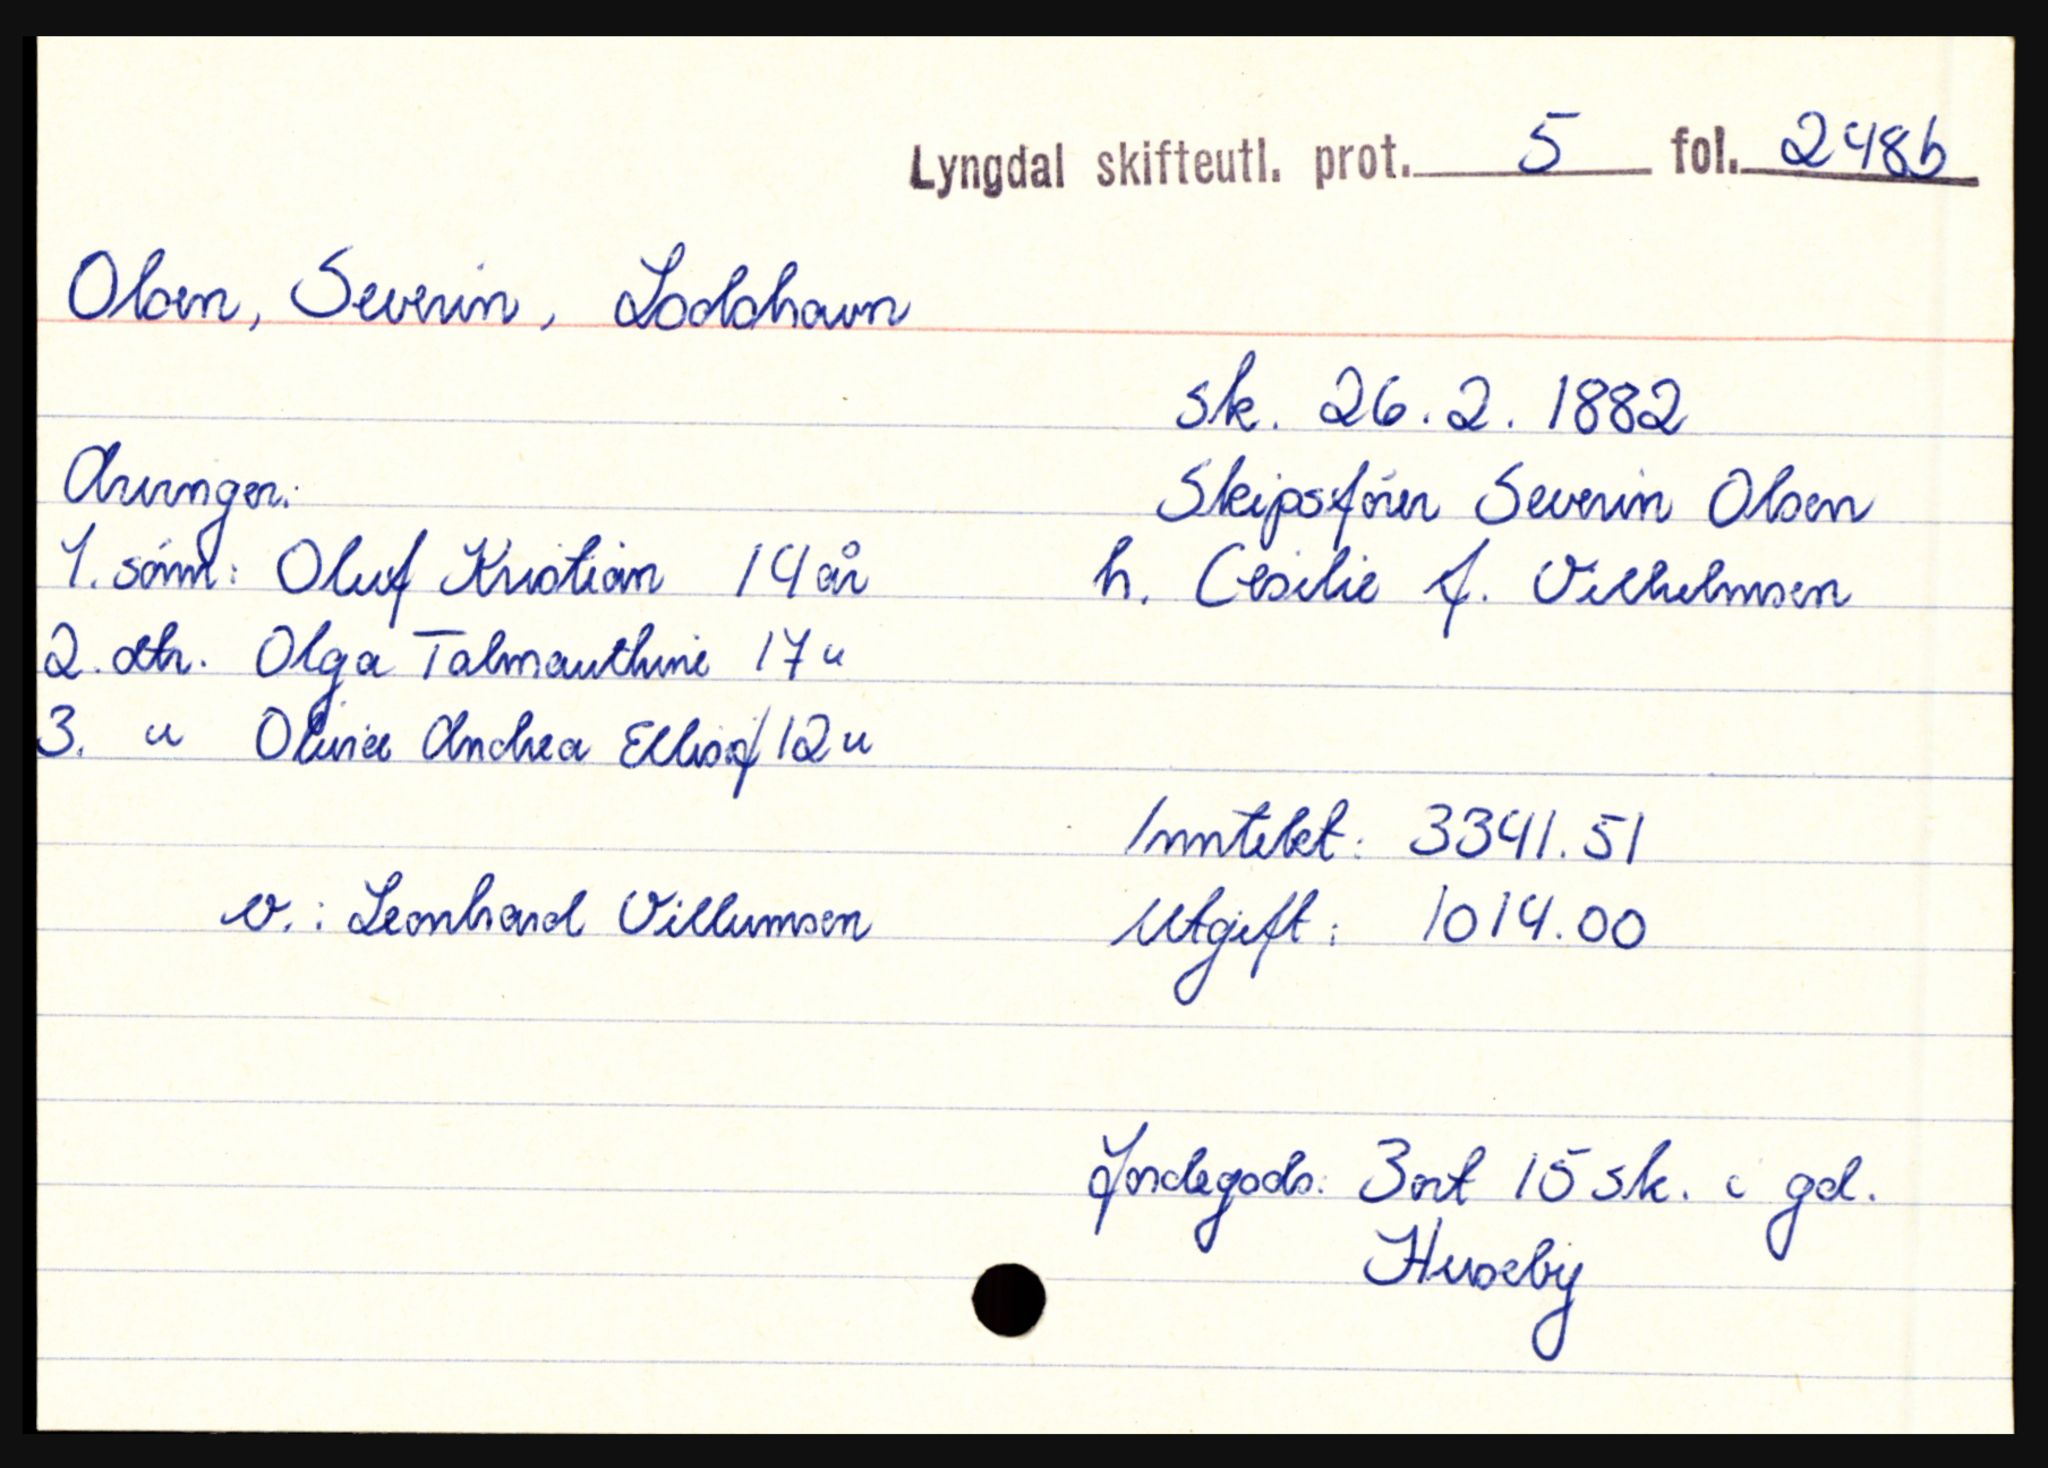 Lyngdal skifteutl. prot. 5 fol. 248b
Olsen, Severin, Loddhavn
sk. 26.2.1882
Arvinger:
Skipsfører Severin Olsen
1. sønn: Oluf Kristian 14 år
h. Cesilie f. Vilhelmsen
2. dtr. Olga Talmanthine 17 "
3. " Olivia Andrea 12 "
Inntekt: 3341.51
v.: Leonhard Villumsen
Utgift: 1014.00
Jordegods: 3 ort 15 sk. i gd.
Huseby